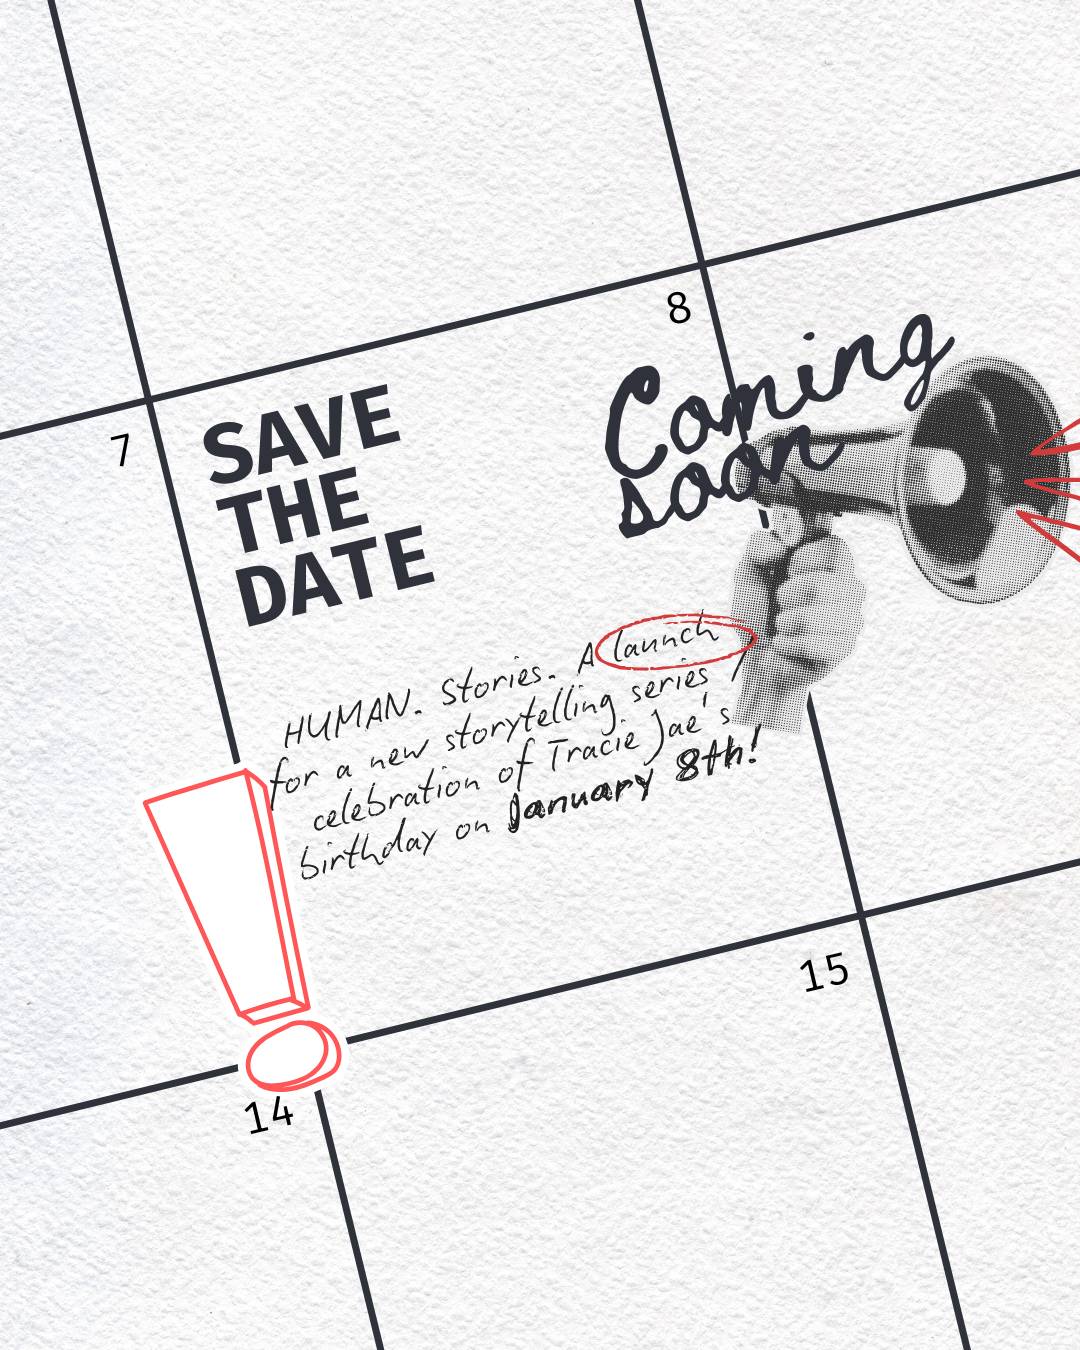 8
Coming
soon
7
SAVE
THE
DATE
HUMAN. Stories. A launch
for a new storytelling series /
celebration of Tracie Jae's
birthday on January 8th!
15
14